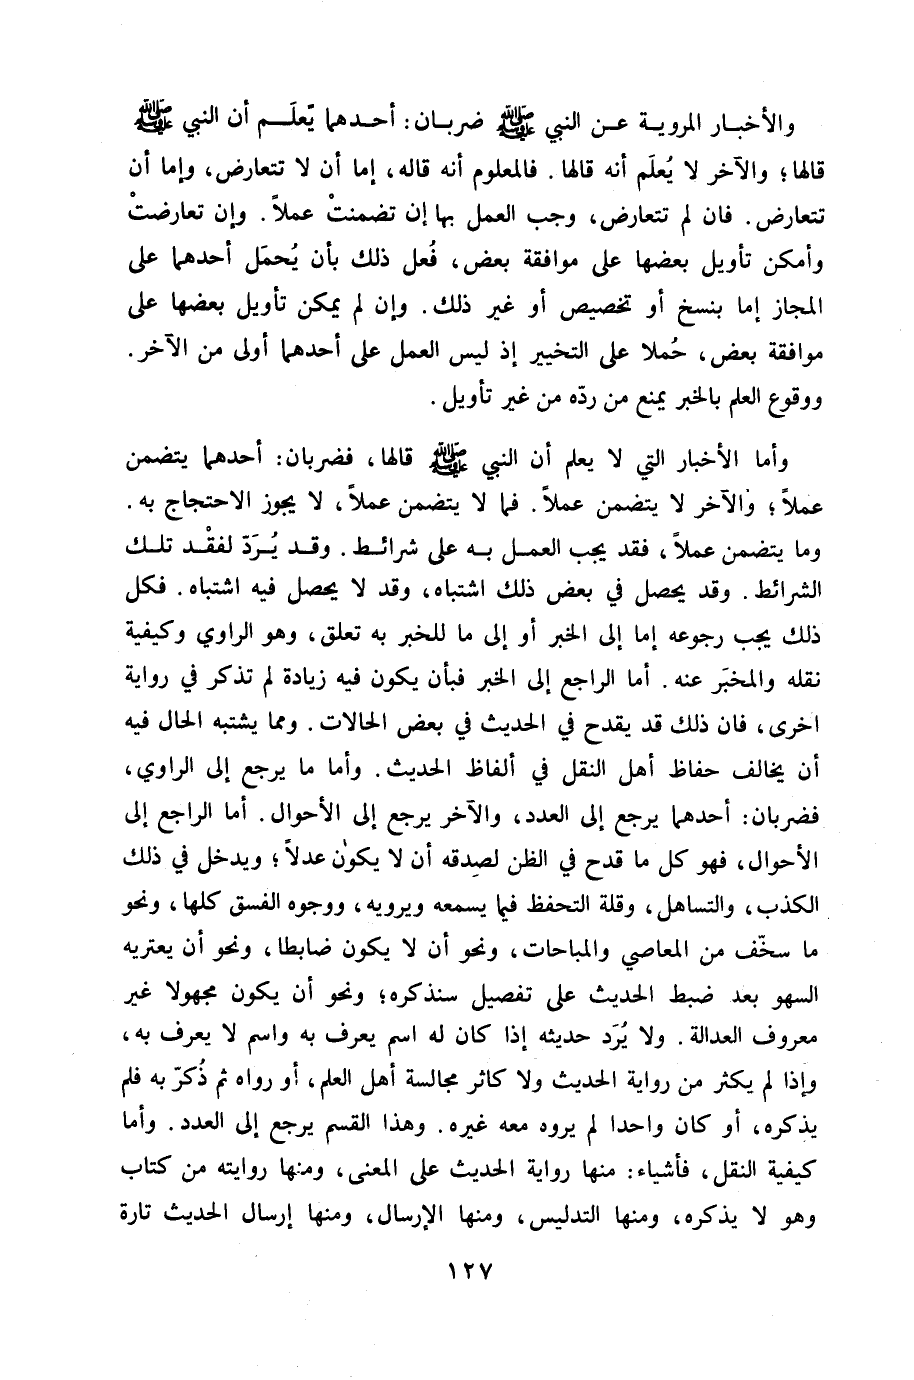 والأخبـار المرويـة عـن النبي ﷺ ضربـان: أحـدهـما يُعلَـم أن النبي ﷺ
قالها؛ والآخر لا يُعلَم أنه قالها. فالمعلوم أنه قاله، إما أن لا تتعارض، وإما أن
تتعارض. فان لم تتعارض، وجب العمل بها إن تضمنتْ عملاً. وإن تعارضتْ
وأمكن تأويل بعضها على موافقة بعض، فُعل ذلك بأن يُحمَل أحدهما على
المجاز إما بنسخ أو تخصيص أو غير ذلك. وإن لم يمكن تأويل بعضها على
موافقة بعض، حُملا على التخيير إذ ليس العمل على أحدهما أولى من الآخر.
ووقوع العلم بالخبر يمنع من ردّه من غير تأويل.
وأما الأخبار التي لا يعلم أن النبي ﷺ قالها، فضربان: أحدهما يتضمن
عملاً؛ والآخر لا يتضمن عملاً. فما لا يتضمن عملاً، لا يجوز الاحتجاج به.
وما يتضمن عملاً، فقد يجب العمـل بـه على شرائـط. وقـد يُـرَدّ لفقْـد تلـك
الشرائط. وقد يحصل في بعض ذلك اشتباه، وقد لا يحصل فيه اشتباه. فكل
ذلك يجب رجوعه إما إلى الخبر أو إلى ما للخبر به تعلق، وهو الراوي وكيفية
نقله والمخبَر عنه. أما الراجع إلى الخبر فبأن يكون فيه زيادة لم تذكر في رواية
اخرى، فان ذلك قد يقدح في الحديث في بعض الحالات. ومما يشتبه الحال فيه
أن يخالف حفاظ أهل النقل في ألفاظ الحديث. وأما ما يرجع إلى الراوي،
فضربان: أحدهما يرجع إلى العدد، والآخر يرجع إلى الأحوال. أما الراجع إلى
الأحوال، فهو كل ما قدح في الظن لصدقه أن لا يكون عدلاً؛ ويدخل في ذلك
الكذب، والتساهل، وقلة التحفظ فيما يسمعه ويرويه، ووجوه الفسق كلها، ونحو
ما سخّف من المعاصي والمباحات، ونحو أن لا يكون ضابطا، ونحو أن يعتريه
السهو بعد ضبط الحديث على تفصيل سنذكره؛ ونحو أن يكون مجهولا غير
معروف العدالة. ولا يُرَد حديثه إذا كان له اسم يعرف به واسم لا يعرف به،
وإذا لم يكثر من رواية الحديث ولا كاثر مجالسة أهل العلم، أو رواه ثم ذُكرّ به فلم
يذكره، أو كان واحدا لم يروه معه غيره. وهذا القسم يرجع إلى العدد. وأما
كيفية النقل، فأشياء: منها رواية الحديث على المعنى، ومنها روايته من كتاب
وهو لا يذكره، ومنها التدليس، ومنها الإرسال، ومنها إرسال الحديث تارة
١٢٧